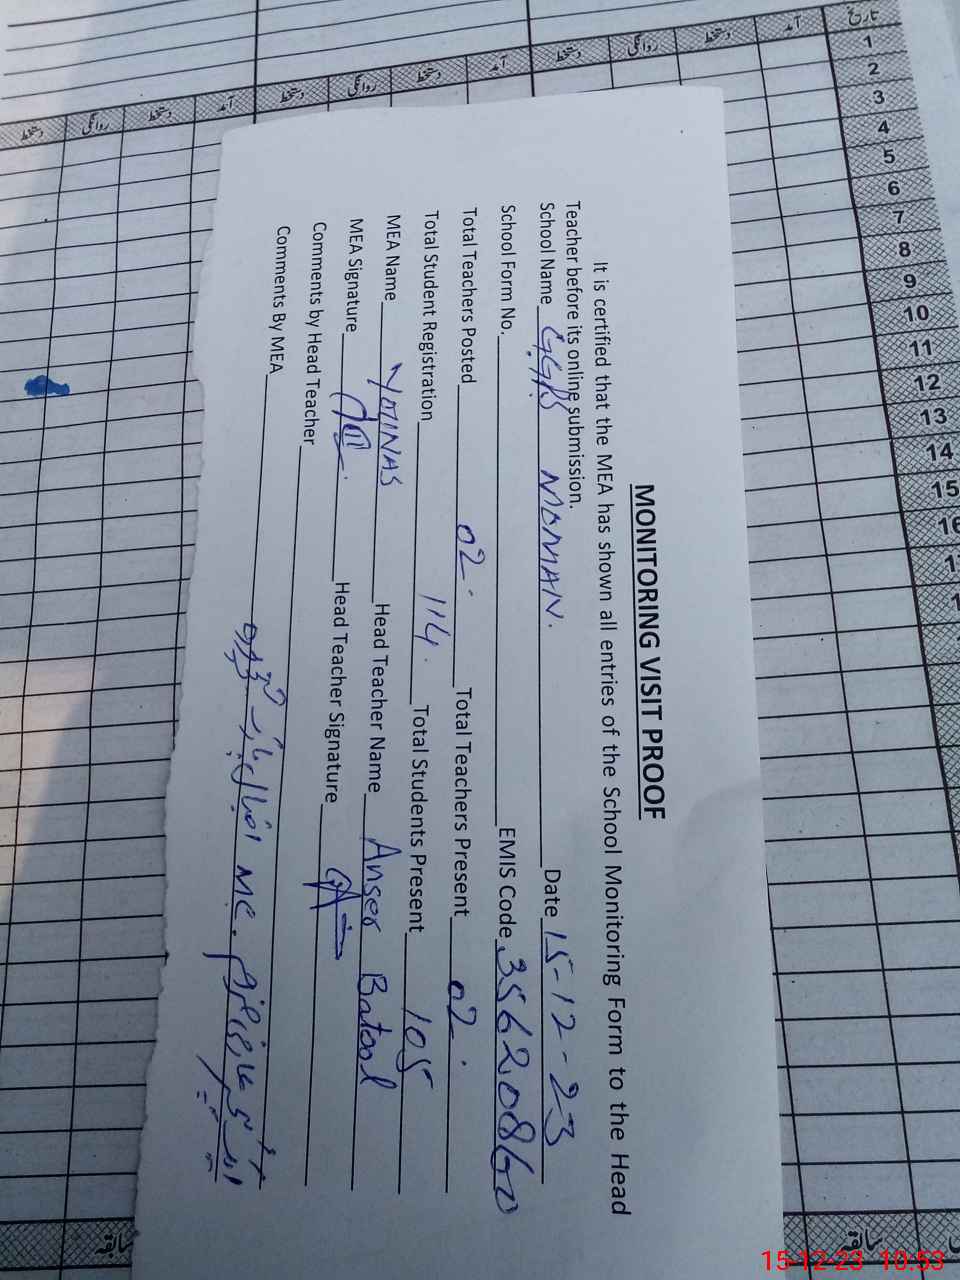 MONITORING VISIT PROOF
It is certified that the MEA has shown all entries of the School Monitoring Form to the Head
Teacher before its online submission.
School Name GGPS MOMAN. Date 15-12-23
School Form No. EMIS Code 35620860
Total Teachers Posted 02. Total Teachers Present 02.
Total Student Registration 114. Total Students Present 105
MEA Name YOUNAS Head Teacher Name Anser Batool
MEA Signature Head Teacher Signature
Comments by Head Teacher
Comments By MEA
تاریخ آمد دستخط روانگی دستخط آمد دستخط روانگی دستخط آمد دستخط روانگی دستخط
1
2
3
4
5
6
7
8
9
10
11
12
13
14
15
16
سابقہ
سابقہ
15-12-23 10:53